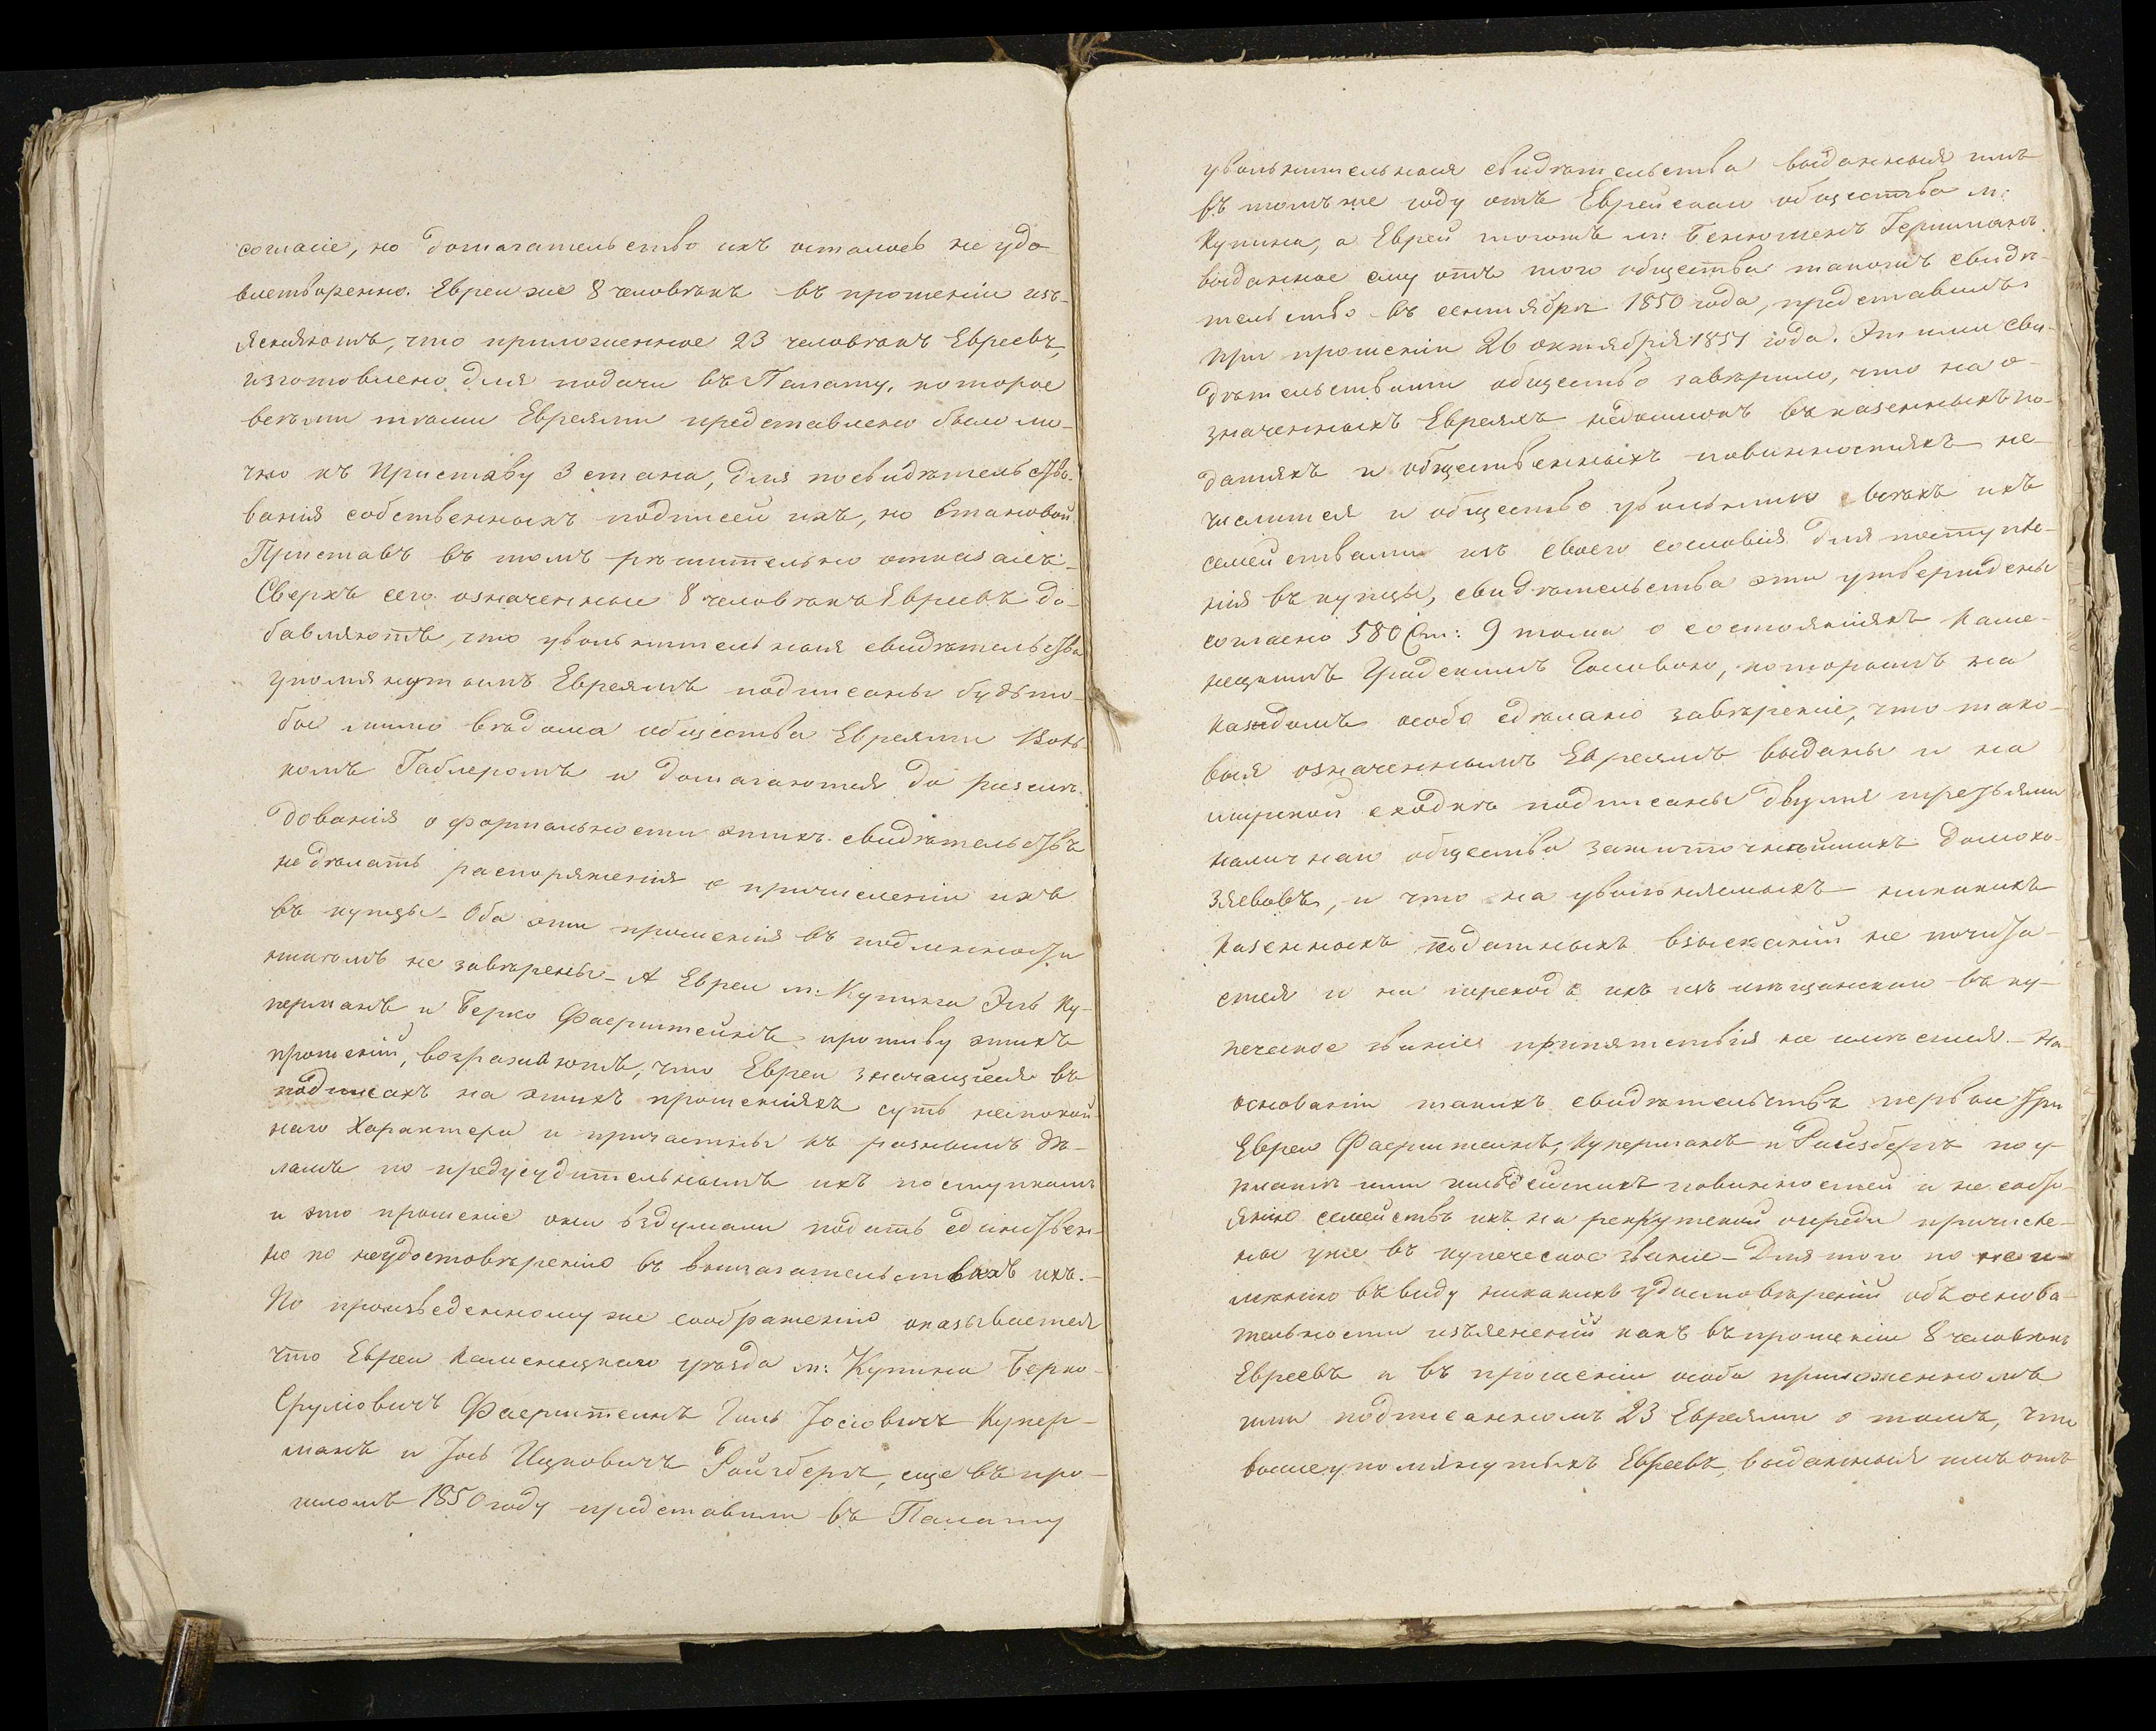 согласіе, но домагательство ихъ осталось не удо-
влетворенно. Евреи же 8 человѣкъ въ прошеніи изъ-
ясняютъ, что приложенное 23 человѣкъ Евреевъ,
изготовлено для подачи въ Палату, которое
всѣми тѣми Евреями представлено было ли-
чно къ Приставу 3 стана, для посвидѣтельство-
ванія собственныхъ подписей ихъ, но Становой
Приставъ въ томъ рѣшительно отказалъ.-
Сверхъ сего означенные 8 человѣкъ Евреевъ до-
бавляютъ, что увольнительныя свидѣтельства
упомянутымъ Евреямъ подписаны будьто-
бы мимо вѣдома общества Евреями
комъ Габлеромъ и домагаются до разслѣ-
дованія о формальности этихъ свидѣтельствъ
недѣлать распоряженія о причисленіи ихъ
въ купцы - Оба эти прошенія въ подлинности
никѣмъ не завѣрены - А Евреи м: Купина Эль Ку-
перманъ и Берко Фаерштейнъ противу этихъ
прошеній, возражаютъ, что Евреи значащіеся въ
подписахъ на этихъ прошеніяхъ суть неспокой-
наго характера и причастны къ разнымъ дѣ-
ламъ по предусудительнымъ ихъ поступкамъ
и это прошеніе они вздумали подать единствен-
но по неудостовѣренію въ ихъ.-
По произведенному же соображенію оказывается
что Евреи Каменецкаго уѣзда м: Купина Берко
Срулiовичъ Фаерштейнъ Гиль Іосіовичъ Купер-
манъ и Іось Ицковичъ Ройзбергъ, еще въ про-
шломъ 1850 году представили въ Палату
увольнительныя свидѣтельства выданныя имъ
въ томъ же году отъ Еврейскаго общества м:
Купина, а Еврей тогожъ м: Беньюменъ Гершманъ
выданное ему отъ того общества таковожъ свидѣ-
тельство въ сентябрѣ 1850 года, представилъ
при прошеніи 26 октября 1851 года. Этими сви-
дѣтельствами общество завѣрило, что на о-
значенныхъ Евреяхъ недоимокъ въ казенныхъ по-
датяхъ и общественныхъ повинностяхъ не
числится и общество увольнило всѣхъ ихъ
семействами изъ своего сословія для поступле-
нія въ купцы, свидѣтельства эти утверждены
согласно 580 Ст: 9 тома о состояніяхъ Каме-
нецкимъ Градскимъ Головою, которымъ на
каждомъ особо сдѣлано завѣреніе, что тако-
выя означеннымъ Евреямъ выданы и на
мирской сходкѣ подписаны двумя третьями
наличнаго общества зажиточнѣйшихъ домохо-
зяевовъ, и что на увольняемыхъ никакихъ
казенныхъ податныхъ взысканій не почита-
ется и на переходъ ихъ изъ мѣщанскаго въ ку-
печеское званіе препятствія не имѣется. - На
основаніи такихъ свидѣтельствъ первые три
Евреи Фаерштейнъ, Куперманъ и Ройзбергъ по у-
платѣ ими повинностей и не состо-
янію семействъ ихъ на рекрутской очереди причисле-
ны уже въ купеческое званіе - Для того по не и-
мѣнію въ виду никакихъ удостовѣреній объ основа-
тельности изъясненій какъ въ прошеніи 8 человѣкъ
Евреевъ и въ прошеніи особо приложенномъ
ими подписанномъ 23 Евреями о томъ, что
вышеупомянутыхъ Евреевъ, выданныя имъ отъ